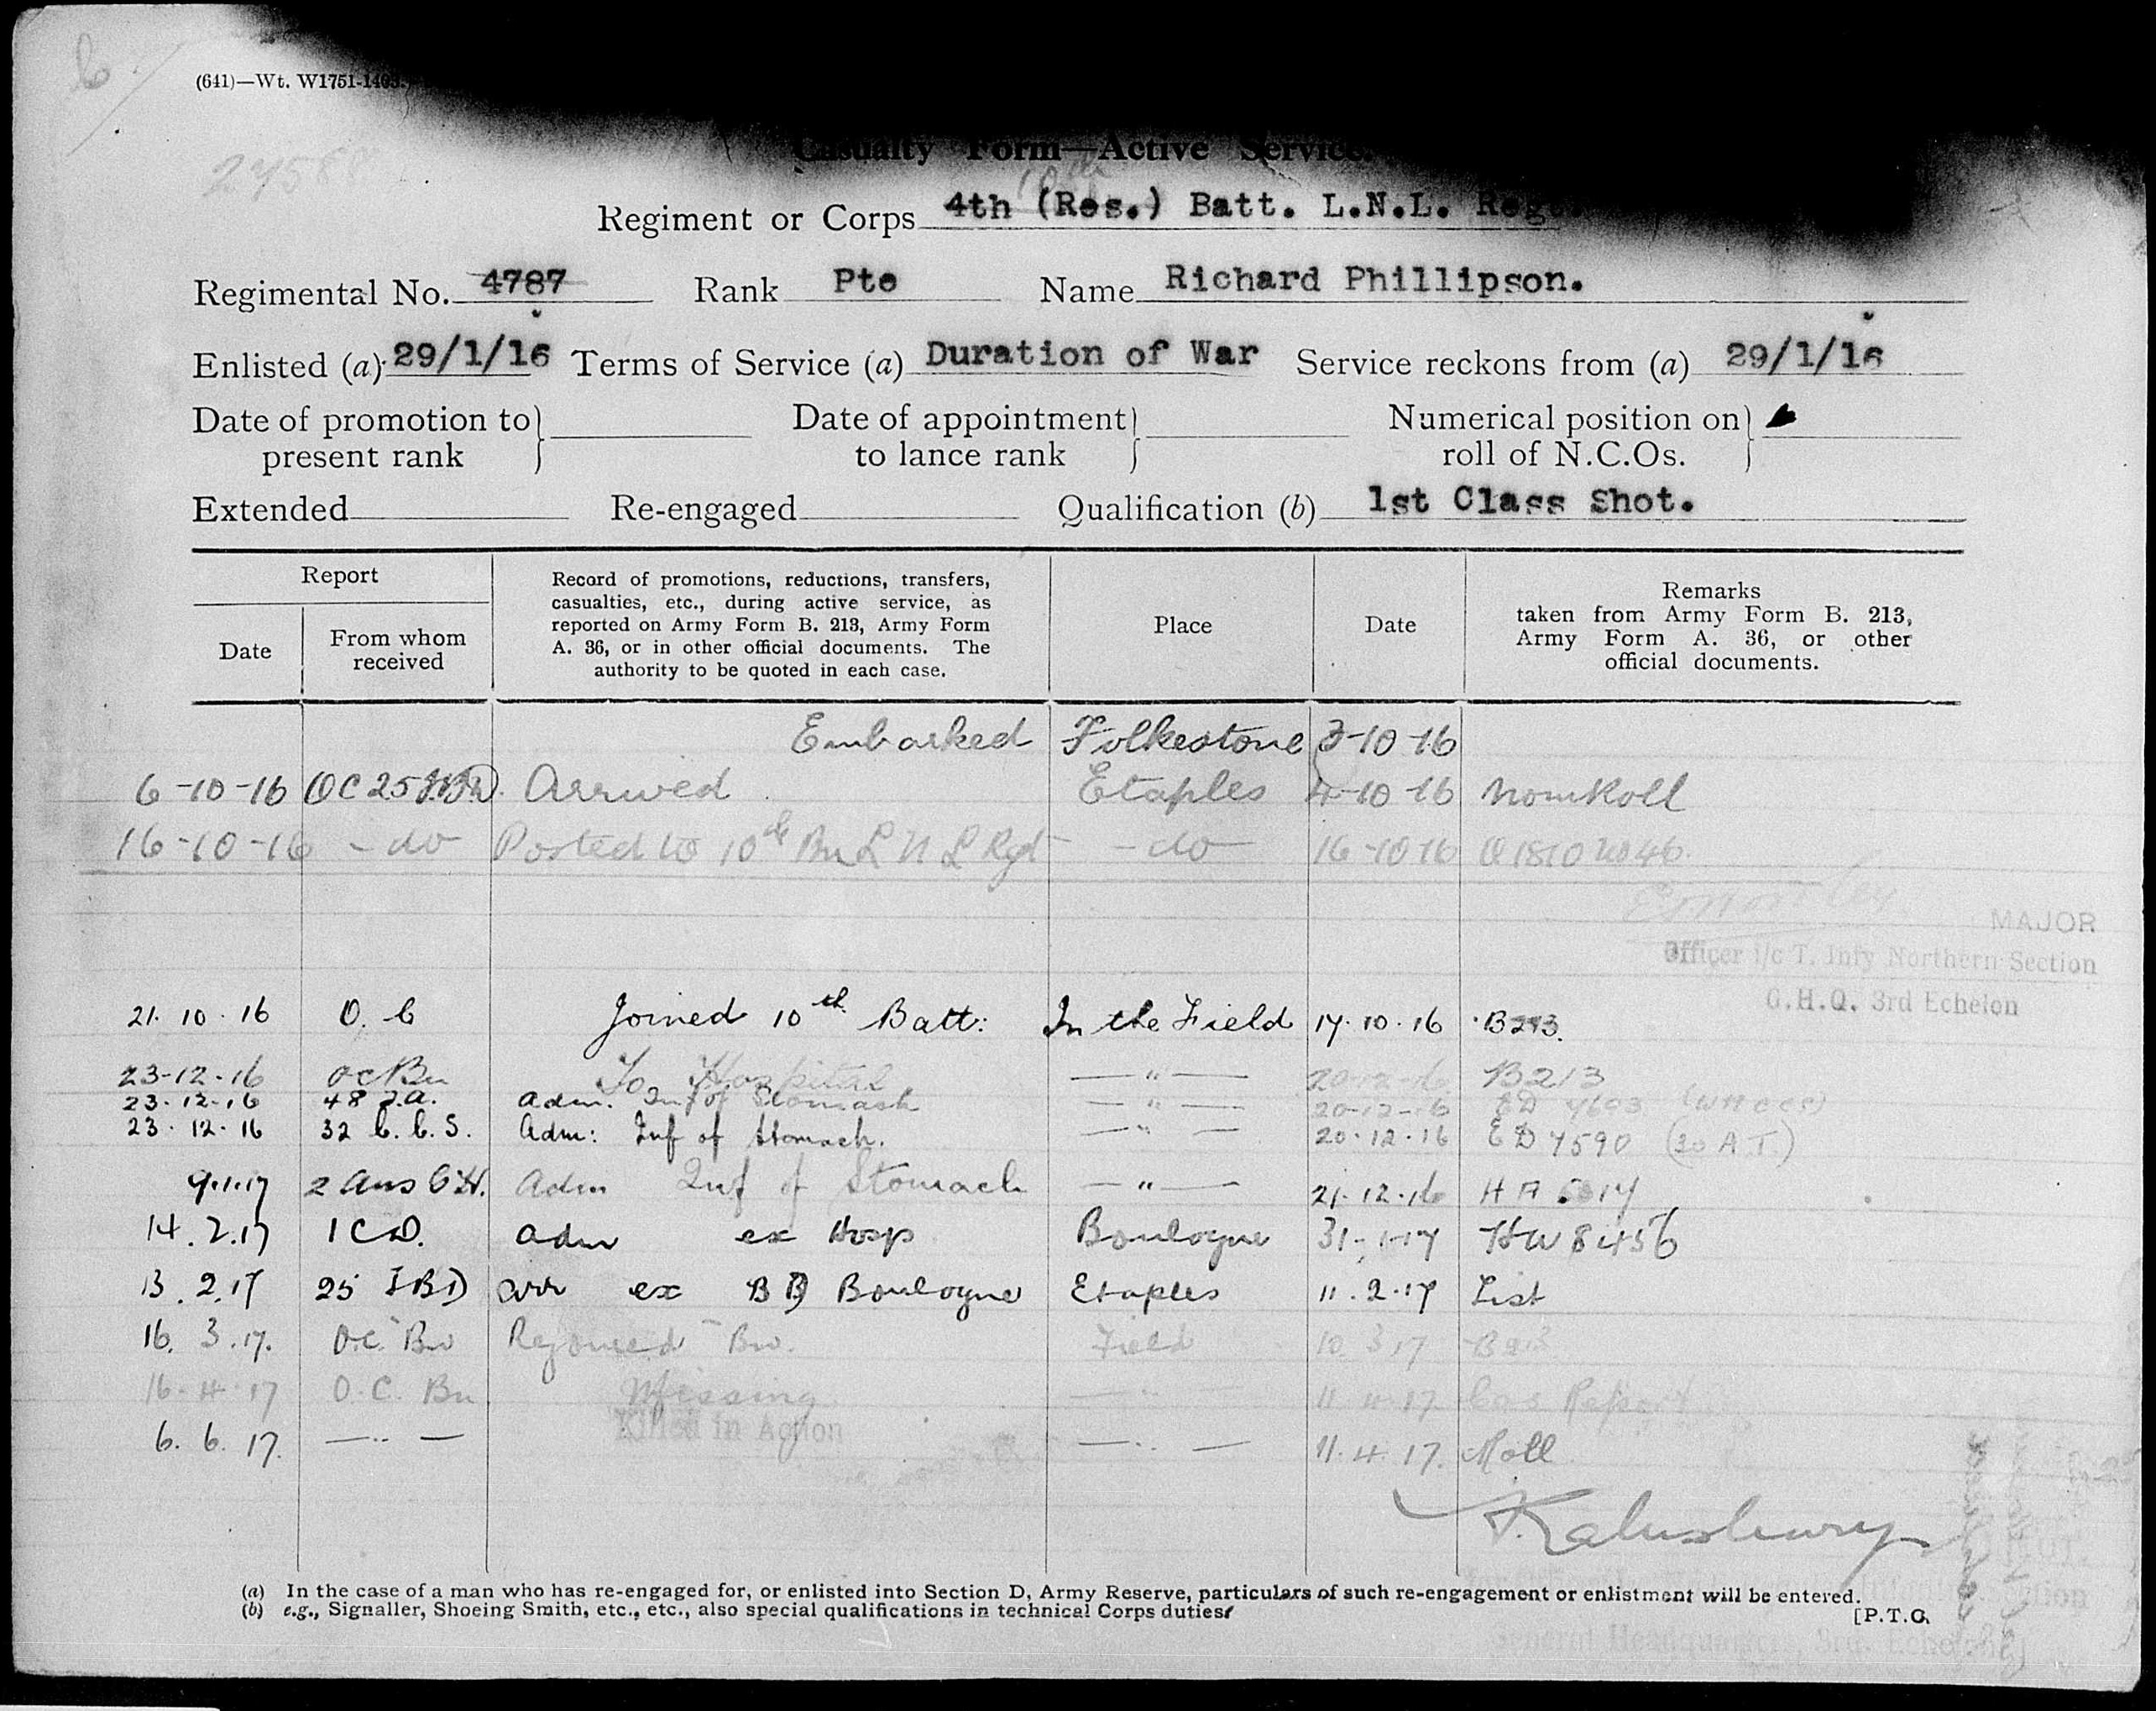 (641)—Wt. W1751-1403.
Casualty Form—Active Service.
10th
Regiment or Corps 4th (Res.) Batt. L.N.L. Regt.
Regimental No. 4787 Rank Pte Name Richard Phillipson.
Enlisted (a) 29/1/16 Terms of Service (a) Duration of War Service reckons from (a) 29/1/16
Date of promotion to present rank Date of appointment to lance rank Numerical position on roll of N.C.Os.
Extended Re-engaged Qualification (b) 1st Class Shot.
Report
Date
From whom received
Record of promotions, reductions, transfers,
casualties, etc., during active service, as
reported on Army Form B. 213, Army Form
A. 36, or in other official documents. The
authority to be quoted in each case.
Place
Date
Remarks
taken from Army Form B. 213,
Army Form A. 36, or other
official documents.
Embarked Folkestone 3-10-16
6-10-16 OC 25 I.B.D. Arrived Etaples 4-10-16 Nom Roll
16-10-16 - do Posted to 10th Bn L N L Rgt - do - 16-10-16
MAJOR
Officer i/c T. Infy Northern Section
G.H.Q. 3rd Echelon
21. 10. 16 O. C Joined 10th Batt: In the Field 17. 10. 16 B213.
23-12-16 OC Bn To Hospital — " — 20-12-16 B213
23. 12. 16 48 F.A. Adm. Inf of Stomach — " — 20-12-16 ED
23. 12. 16 32 C.C.S. Adm: Inf of Stomach. — " — 20. 12. 16 ED 7590 (20 A T)
9.1.17 2 Aus G H. Adm Inf of Stomach — " — 21. 12. 16 H A
14. 2. 17 1 C D. Adm ex Hosp Boulogne 31-1-17 HW 8456
13. 2. 17 25 I B D arr ex B D Boulogne Etaples 11. 2. 17 List
16. 3. 17. O.C. Bn Rejoined Bn. Field 10 3 17 B213
16-4-17 O. C. Bn Missing — " — 11. 4. 17 Cas Report
Killed in Action
6. 6. 17. — " — — " — 11. 4. 17. Roll
(a) In the case of a man who has re-engaged for, or enlisted into Section D, Army Reserve, particulars of such re-engagement or enlistment will be entered.
(b) e.g., Signaller, Shoeing Smith, etc., etc., also special qualifications in technical Corps duties.
[P.T.O.
General Headquarters, 3rd. Echelon